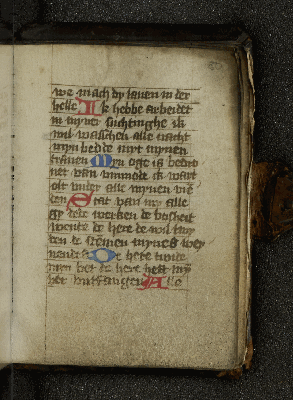 we mach dy lauen in der
helle Ik hebbe arbeidet
in myner suchtinghe ik
wil waschen alle nacht
myn bedde myt mynen
tranen Myn oge is bedro
uet van unmode ik wart
olt under alle mynen vie
den Gat van my alle
gy dede werken de bosheit
wente de here de wil my
ten de stemen mynes wey
nendes De here
myn bet de here heft my
bet entfangen Alle